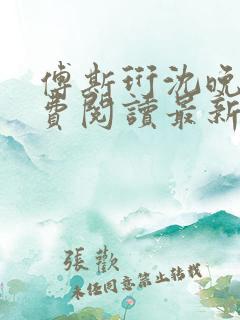 傅斯珩沈晚
費閱讀最新
張歡
未經同意禁止轉載